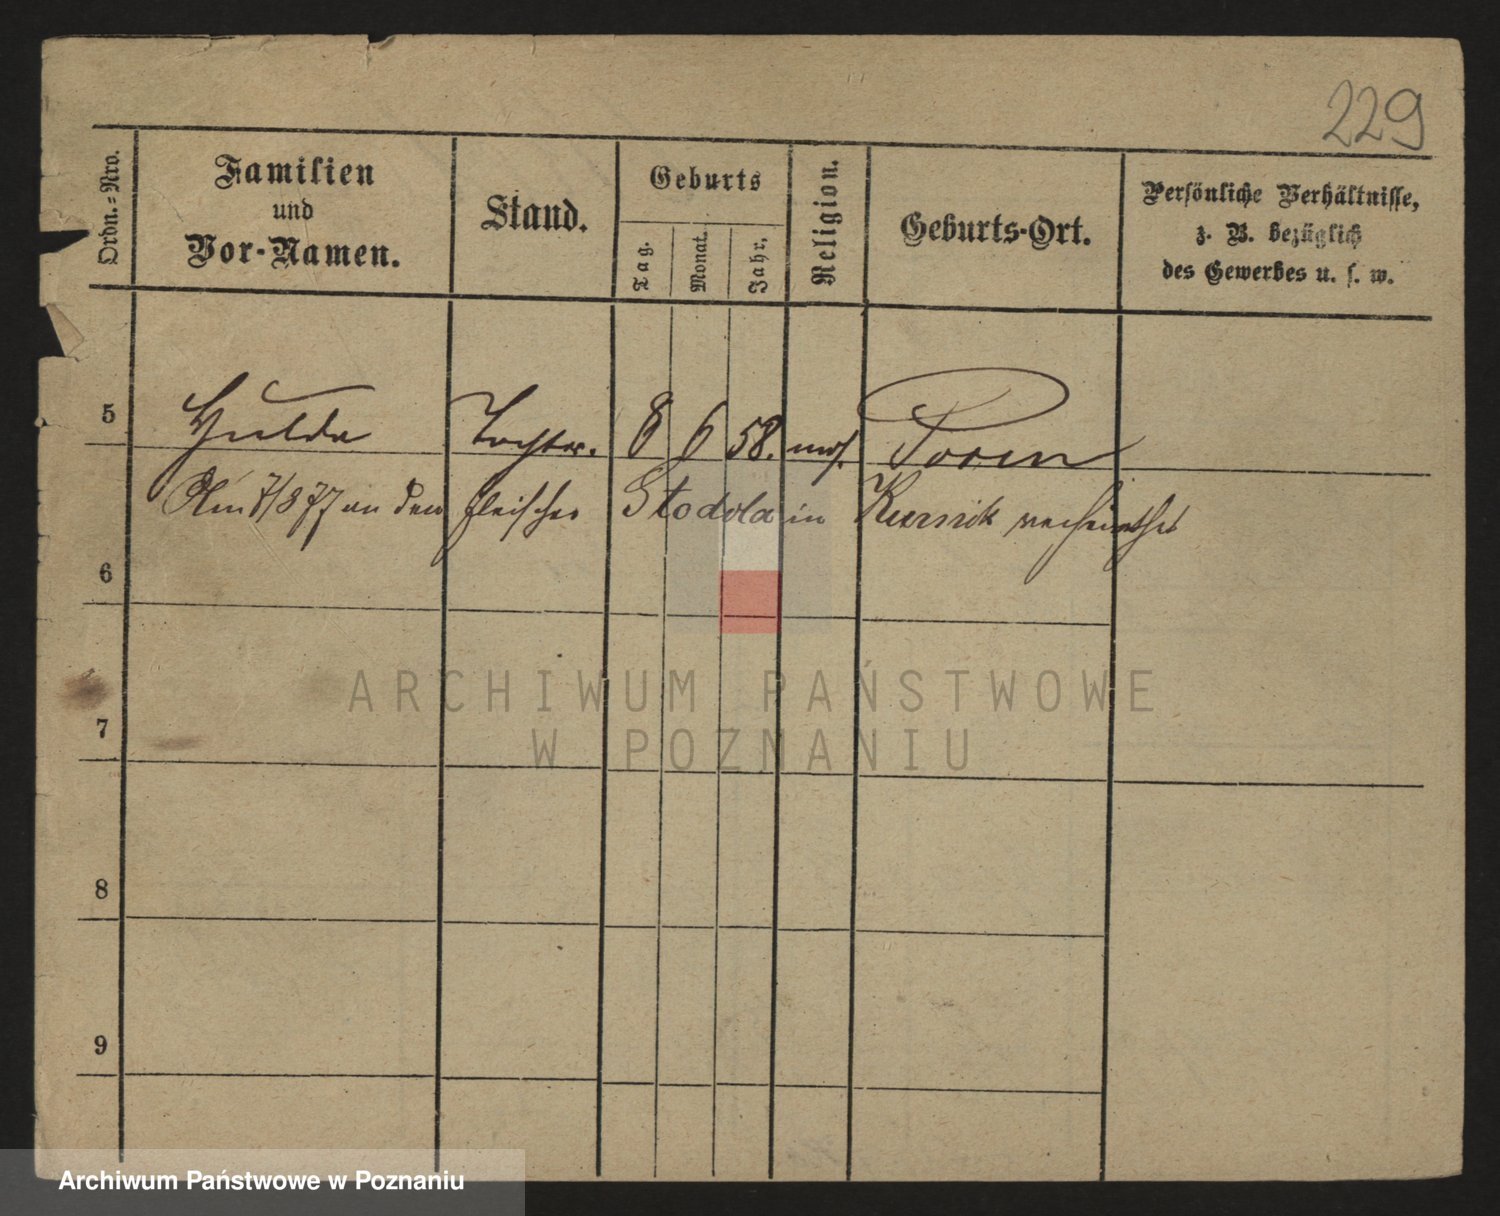 229
Ordn.=Nro.
Familien
und
Vor-Namen.
Stand.
Geburts
Tag.
Monat.
Jahr.
Religion.
Geburts-Ort.
Persönliche Verhältnisse,
z. B. bezüglich
des Gewerbes u. s. w.
5 Hulda Tochter. 8 6 58. mos. Posen
Am 7/8 77 an den Fleischer Stodola in Kurnik verheirathet
6
7
8
9
ARCHIWUM PAŃSTWOWE
W POZNANIU
Archiwum Państwowe w Poznaniu